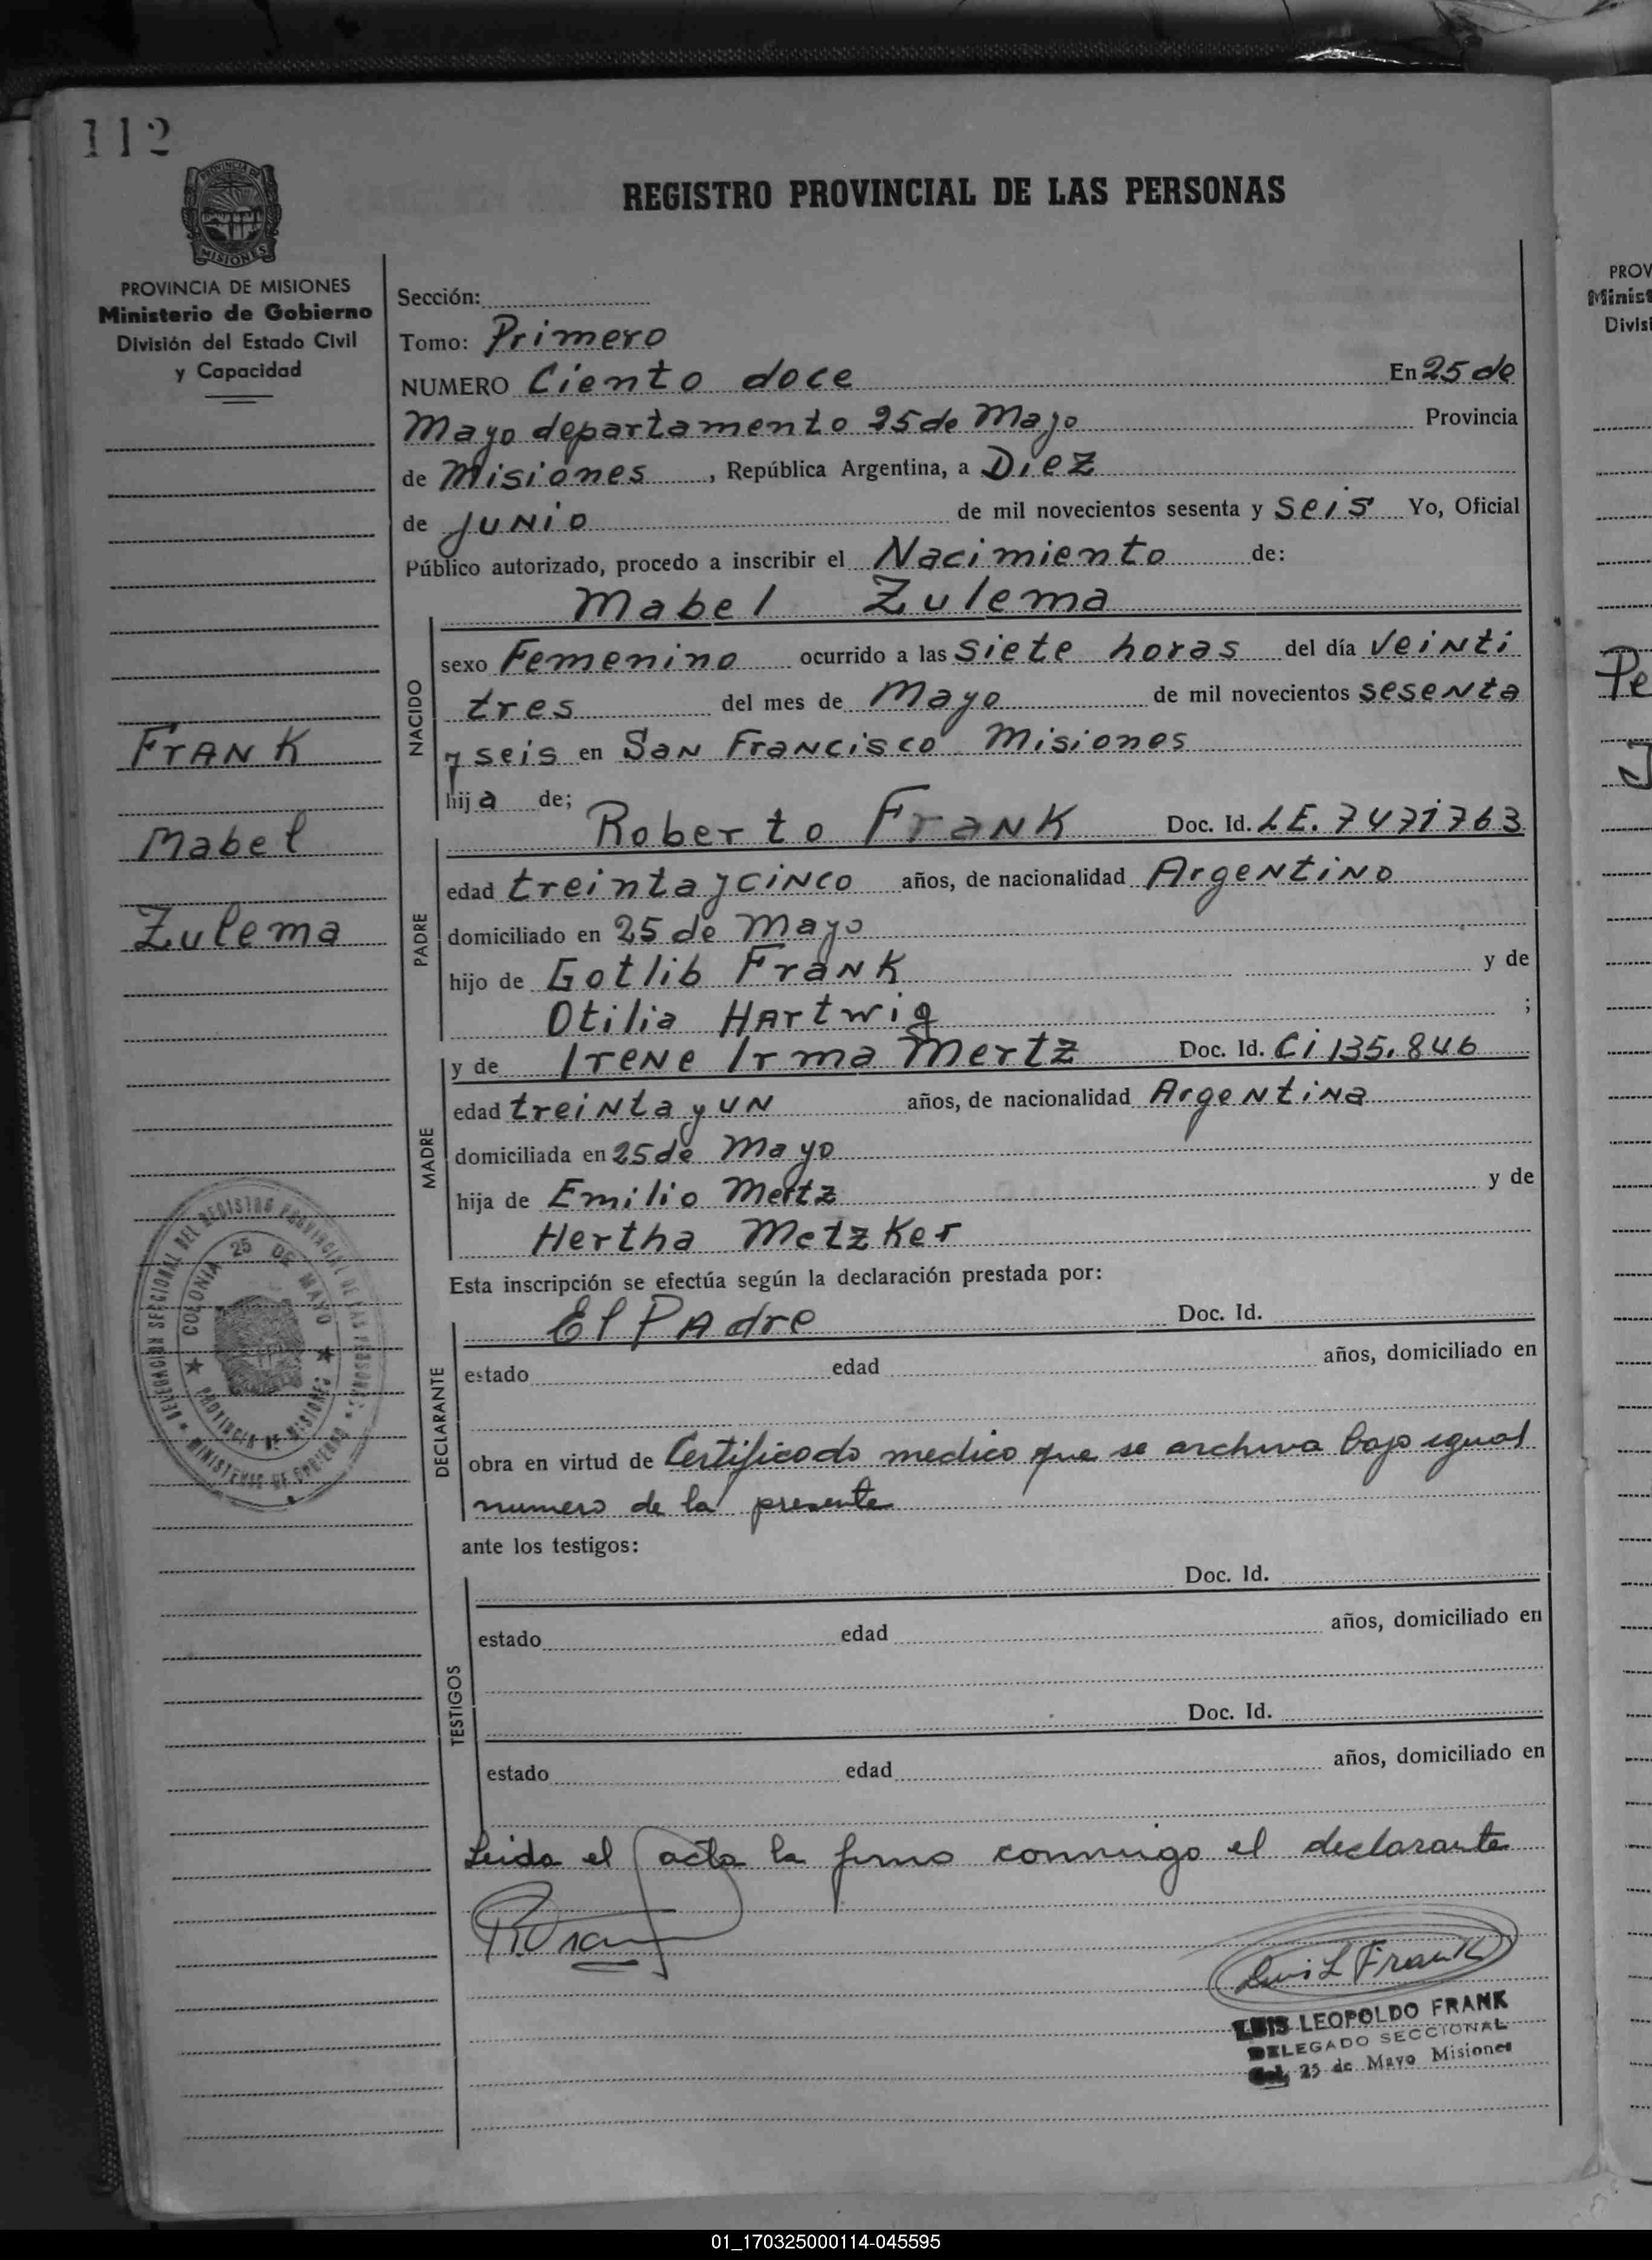 112
PROVINCIA DE
MISIONES
REGISTRO PROVINCIAL DE LAS PERSONAS
PROVINCIA DE MISIONES
Ministerio de Gobierno
División del Estado Civil
y Capacidad
FrANK
Mabel
Zulema
Sección:
Tomo: Primero
NUMERO Ciento doce En 25 de
Mayo departamento 25 de Mayo Provincia
de Misiones, República Argentina, a Diez
de JUNio de mil novecientos sesenta y seis Yo, Oficial
Público autorizado, procedo a inscribir el Nacimiento de:
Mabel Zulema
NACIDO
sexo Femenino ocurrido a las siete horas del día veinti
tres del mes de Mayo de mil novecientos sesenta
y seis en San Francisco Misiones
hija de;
Roberto Frank Doc. Id. LE. 7471763
PADRE
edad treinta y cinco años, de nacionalidad Argentino
domiciliado en 25 de Mayo
hijo de Gotlib Frank y de
Otilia Hartwig ;
y de Irene Irma Mertz Doc. Id. Ci 135.846
MADRE
edad treinta y un años, de nacionalidad Argentina
domiciliada en 25 de Mayo
hija de Emilio Mertz y de
Hertha Metzker
Esta inscripción se efectúa según la declaración prestada por:
El Padre Doc. Id.
DECLARANTE
estado edad años, domiciliado en
obra en virtud de Certificado medico que se archiva bajo igual
numero de la presente
ante los testigos:
Doc. Id.
TESTIGOS
estado edad años, domiciliado en
Doc. Id.
estado edad años, domiciliado en
Leida el acta la firma conmigo el declarante
Luis L Frank
LUIS LEOPOLDO FRANK
DELEGADO SECCIONAL
Col. 25 de Mayo Misiones
DELEGACION SECCIONAL DEL REGISTRO PROVINCIAL DE LAS PERSONAS
MINISTERIO DE GOBIERNO
COLONIA 25 DE MAYO
PROVINCIA DE MISIONES
PROV
Minist
Divisi
Pe
01_170325000114-045595